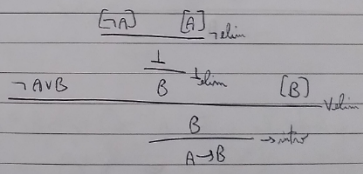 [¬A] [A] ¬elim
⊥
B ⊥elim
¬A∨B [B] ∨elim
B
A→B →intro